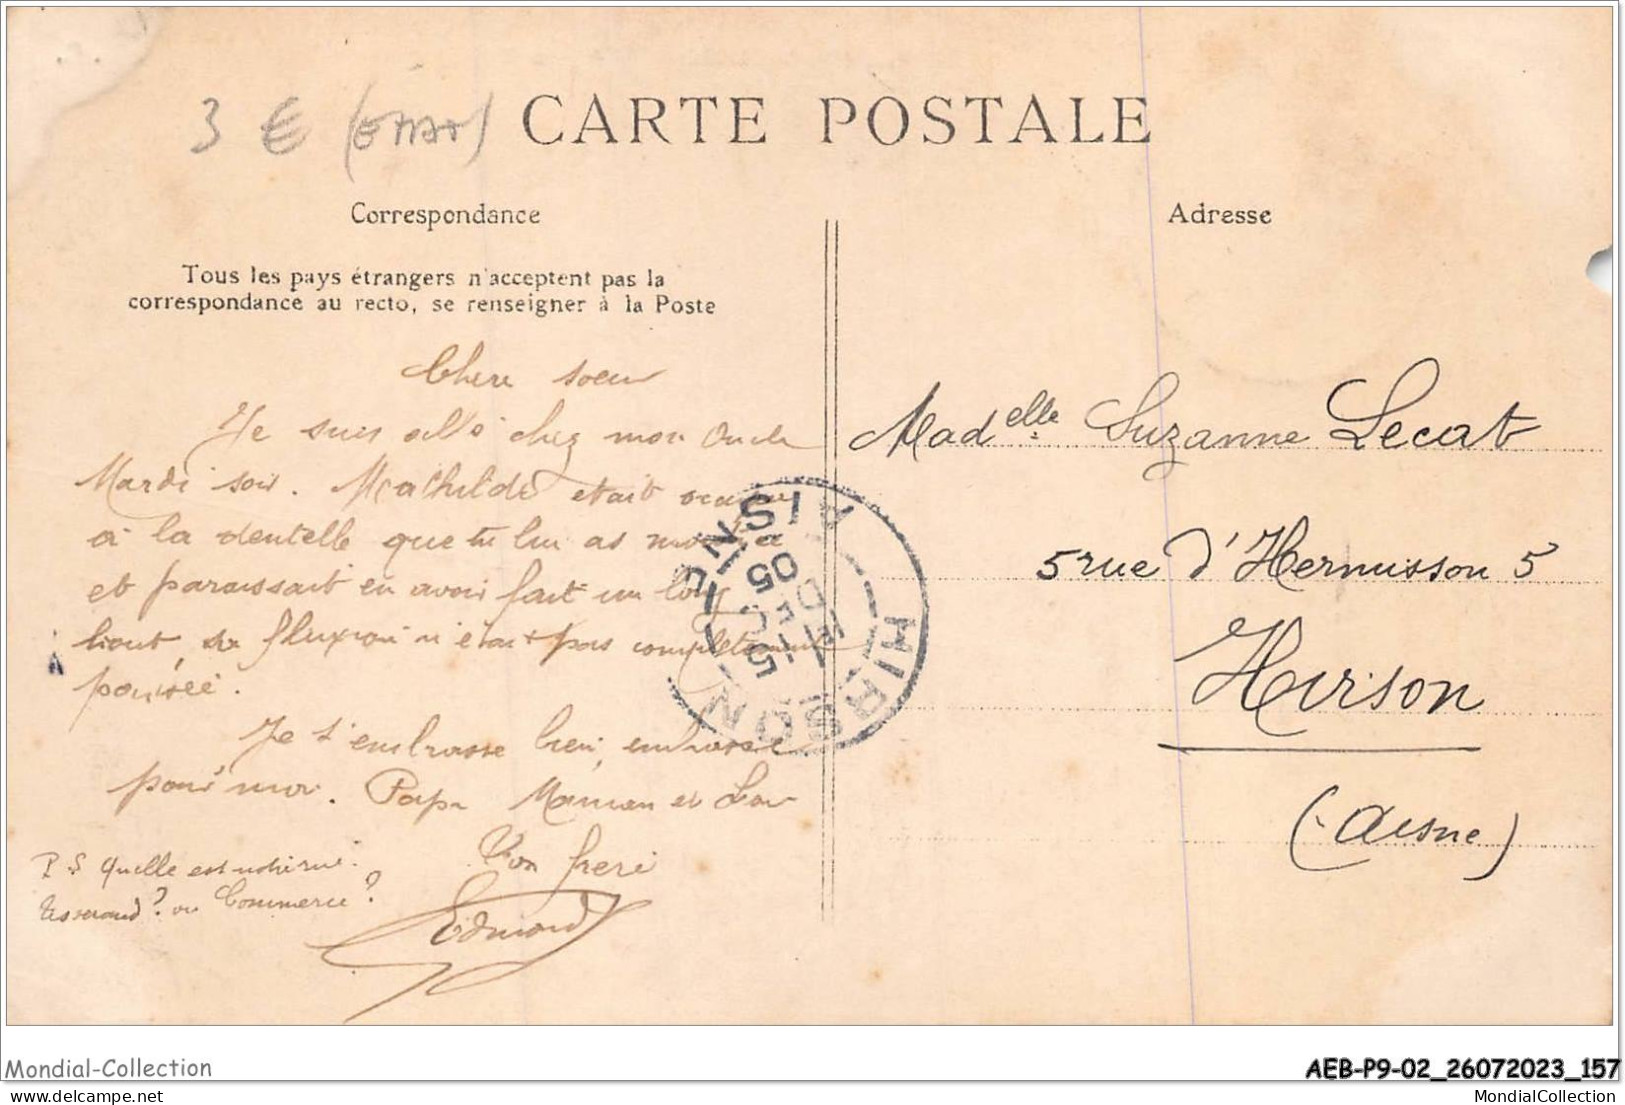 3 € (état)
CARTE POSTALE
Correspondance
Adresse
Tous les pays étrangers n'acceptent pas la
correspondance au recto, se renseigner à la Poste
Chere soeur
Je suis allé chez mon Oncle
Mardi soir. Mathilde etait
à la dentelle que tu lui as
et paraissait en avoir fait un long
bout, sa fluxion n'était pas complètement
Je t'embrasse bien, embrasse
pour moi. Papa Maman et
Ton frere
Edmond
P.S quelle est notre rue.
Tisserand? ou Commerce?
Madelle Suzanne Lecat
5 rue d'Hermisson 5
Hirson
(Aisne)
HIRSON AISNE
15
DEC
05
Mondial-Collection
AEB-P9-02_26072023_157
MondialCollection.com
MondialCollection